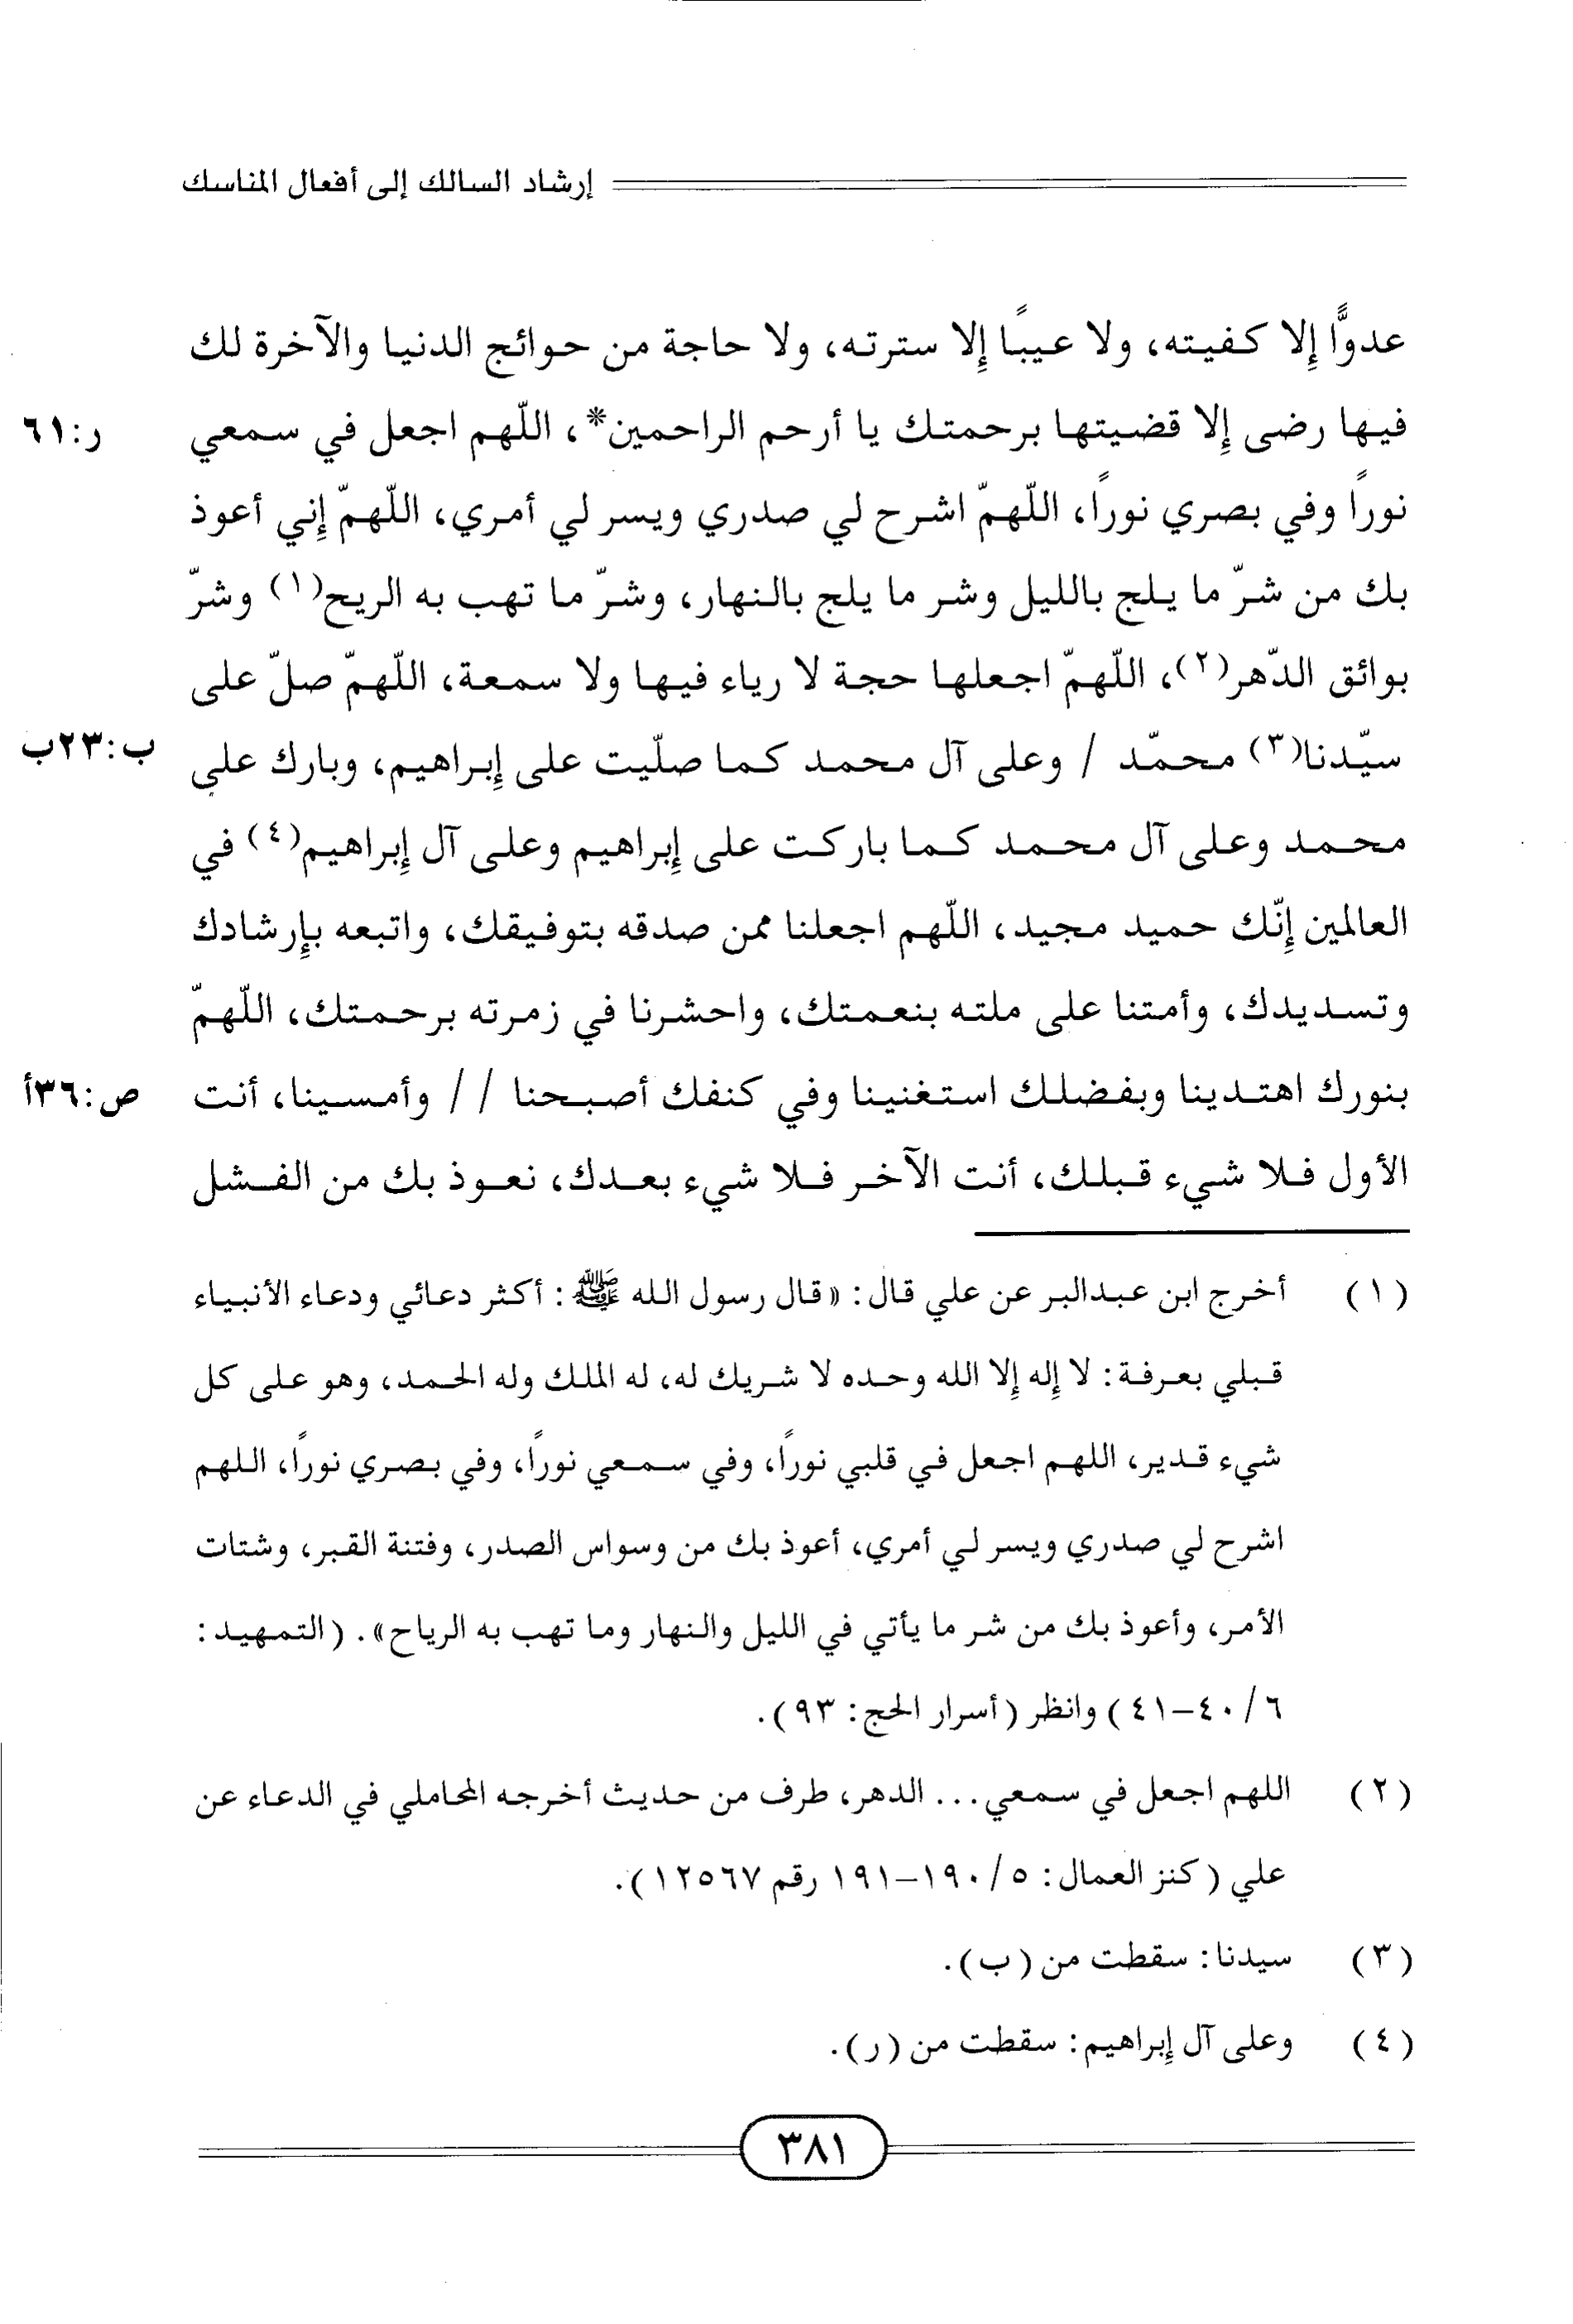 إرشاد السالك إلى أفعال المناسك
عدوًّا إِلا كفيته، ولا عيبًا إِلا سترته، ولا حاجة من حوائج الدنيا والآخرة لك
فيها رضى إِلا قضيتها برحمتك يا أرحم الراحمين*، اللّهم اجعل في سمعي
ر:٦١
نورًا وفي بصري نورًا، اللّهمّ اشرح لي صدري ويسر لي أمري، اللّهمّ إِني أعوذ
بك من شرّ ما يلج بالليل وشر ما يلج بالنهار، وشرّ ما تهب به الريح(١) وشرّ
بوائق الدّهر(٢)، اللّهمّ اجعلها حجة لا رياء فيها ولا سمعة، اللّهمّ صلّ على
سيّدنا(٣) محمّد / وعلى آل محمد كما صلّيت على إِبراهيم، وبارك على
ب:٢٣ب
محمد وعلى آل محمد كما باركت على إِبراهيم وعلى آل إِبراهيم(٤) في
العالمين إِنّك حميد مجيد، اللّهم اجعلنا ممن صدقه بتوفيقك، واتبعه بإِرشادك
وتسديدك، وأمتنا على ملته بنعمتك، واحشرنا في زمرته برحمتك، اللّهمّ
بنورك اهتدينا وبفضلك استغنينا وفي كنفك أصبحنا // وأمسينا، أنت
ص:٣٦أ
الأول فلا شيء قبلك، أنت الآخر فلا شيء بعدك، نعوذ بك من الفشل
(١) أخرج ابن عبدالبر عن علي قال: «قال رسول الله ﷺ: أكثر دعائي ودعاء الأنبياء
قبلي بعرفة: لا إِله إِلا الله وحده لا شريك له، له الملك وله الحمد، وهو على كل
شيء قدير، اللهم اجعل في قلبي نورًا، وفي سمعي نورًا، وفي بصري نورًا، اللهم
اشرح لي صدري ويسر لي أمري، أعوذ بك من وسواس الصدر، وفتنة القبر، وشتات
الأمر، وأعوذ بك من شر ما يأتي في الليل والنهار وما تهب به الرياح». (التمهيد:
٦/ ٤٠-٤١) وانظر (أسرار الحج: ٩٣).
(٢) اللهم اجعل في سمعي... الدهر، طرف من حديث أخرجه المحاملي في الدعاء عن
علي (كنز العمال: ٥/ ١٩٠-١٩١ رقم ١٢٥٦٧).
(٣) سيدنا: سقطت من (ب).
(٤) وعلى آل إِبراهيم: سقطت من (ر).
٣٨١